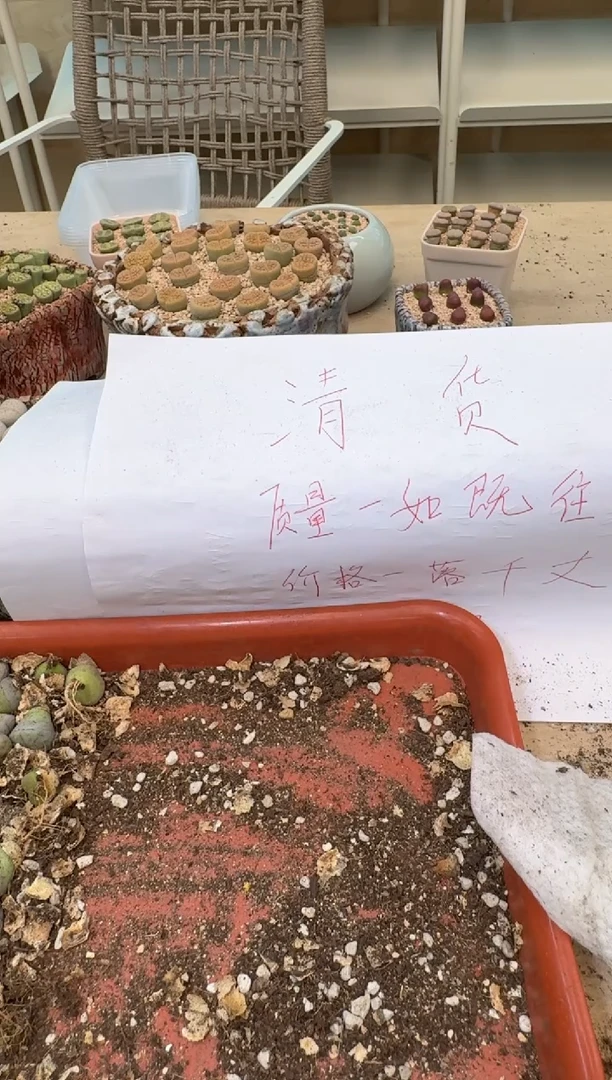 清 货
质量一如既往
价格一落千丈